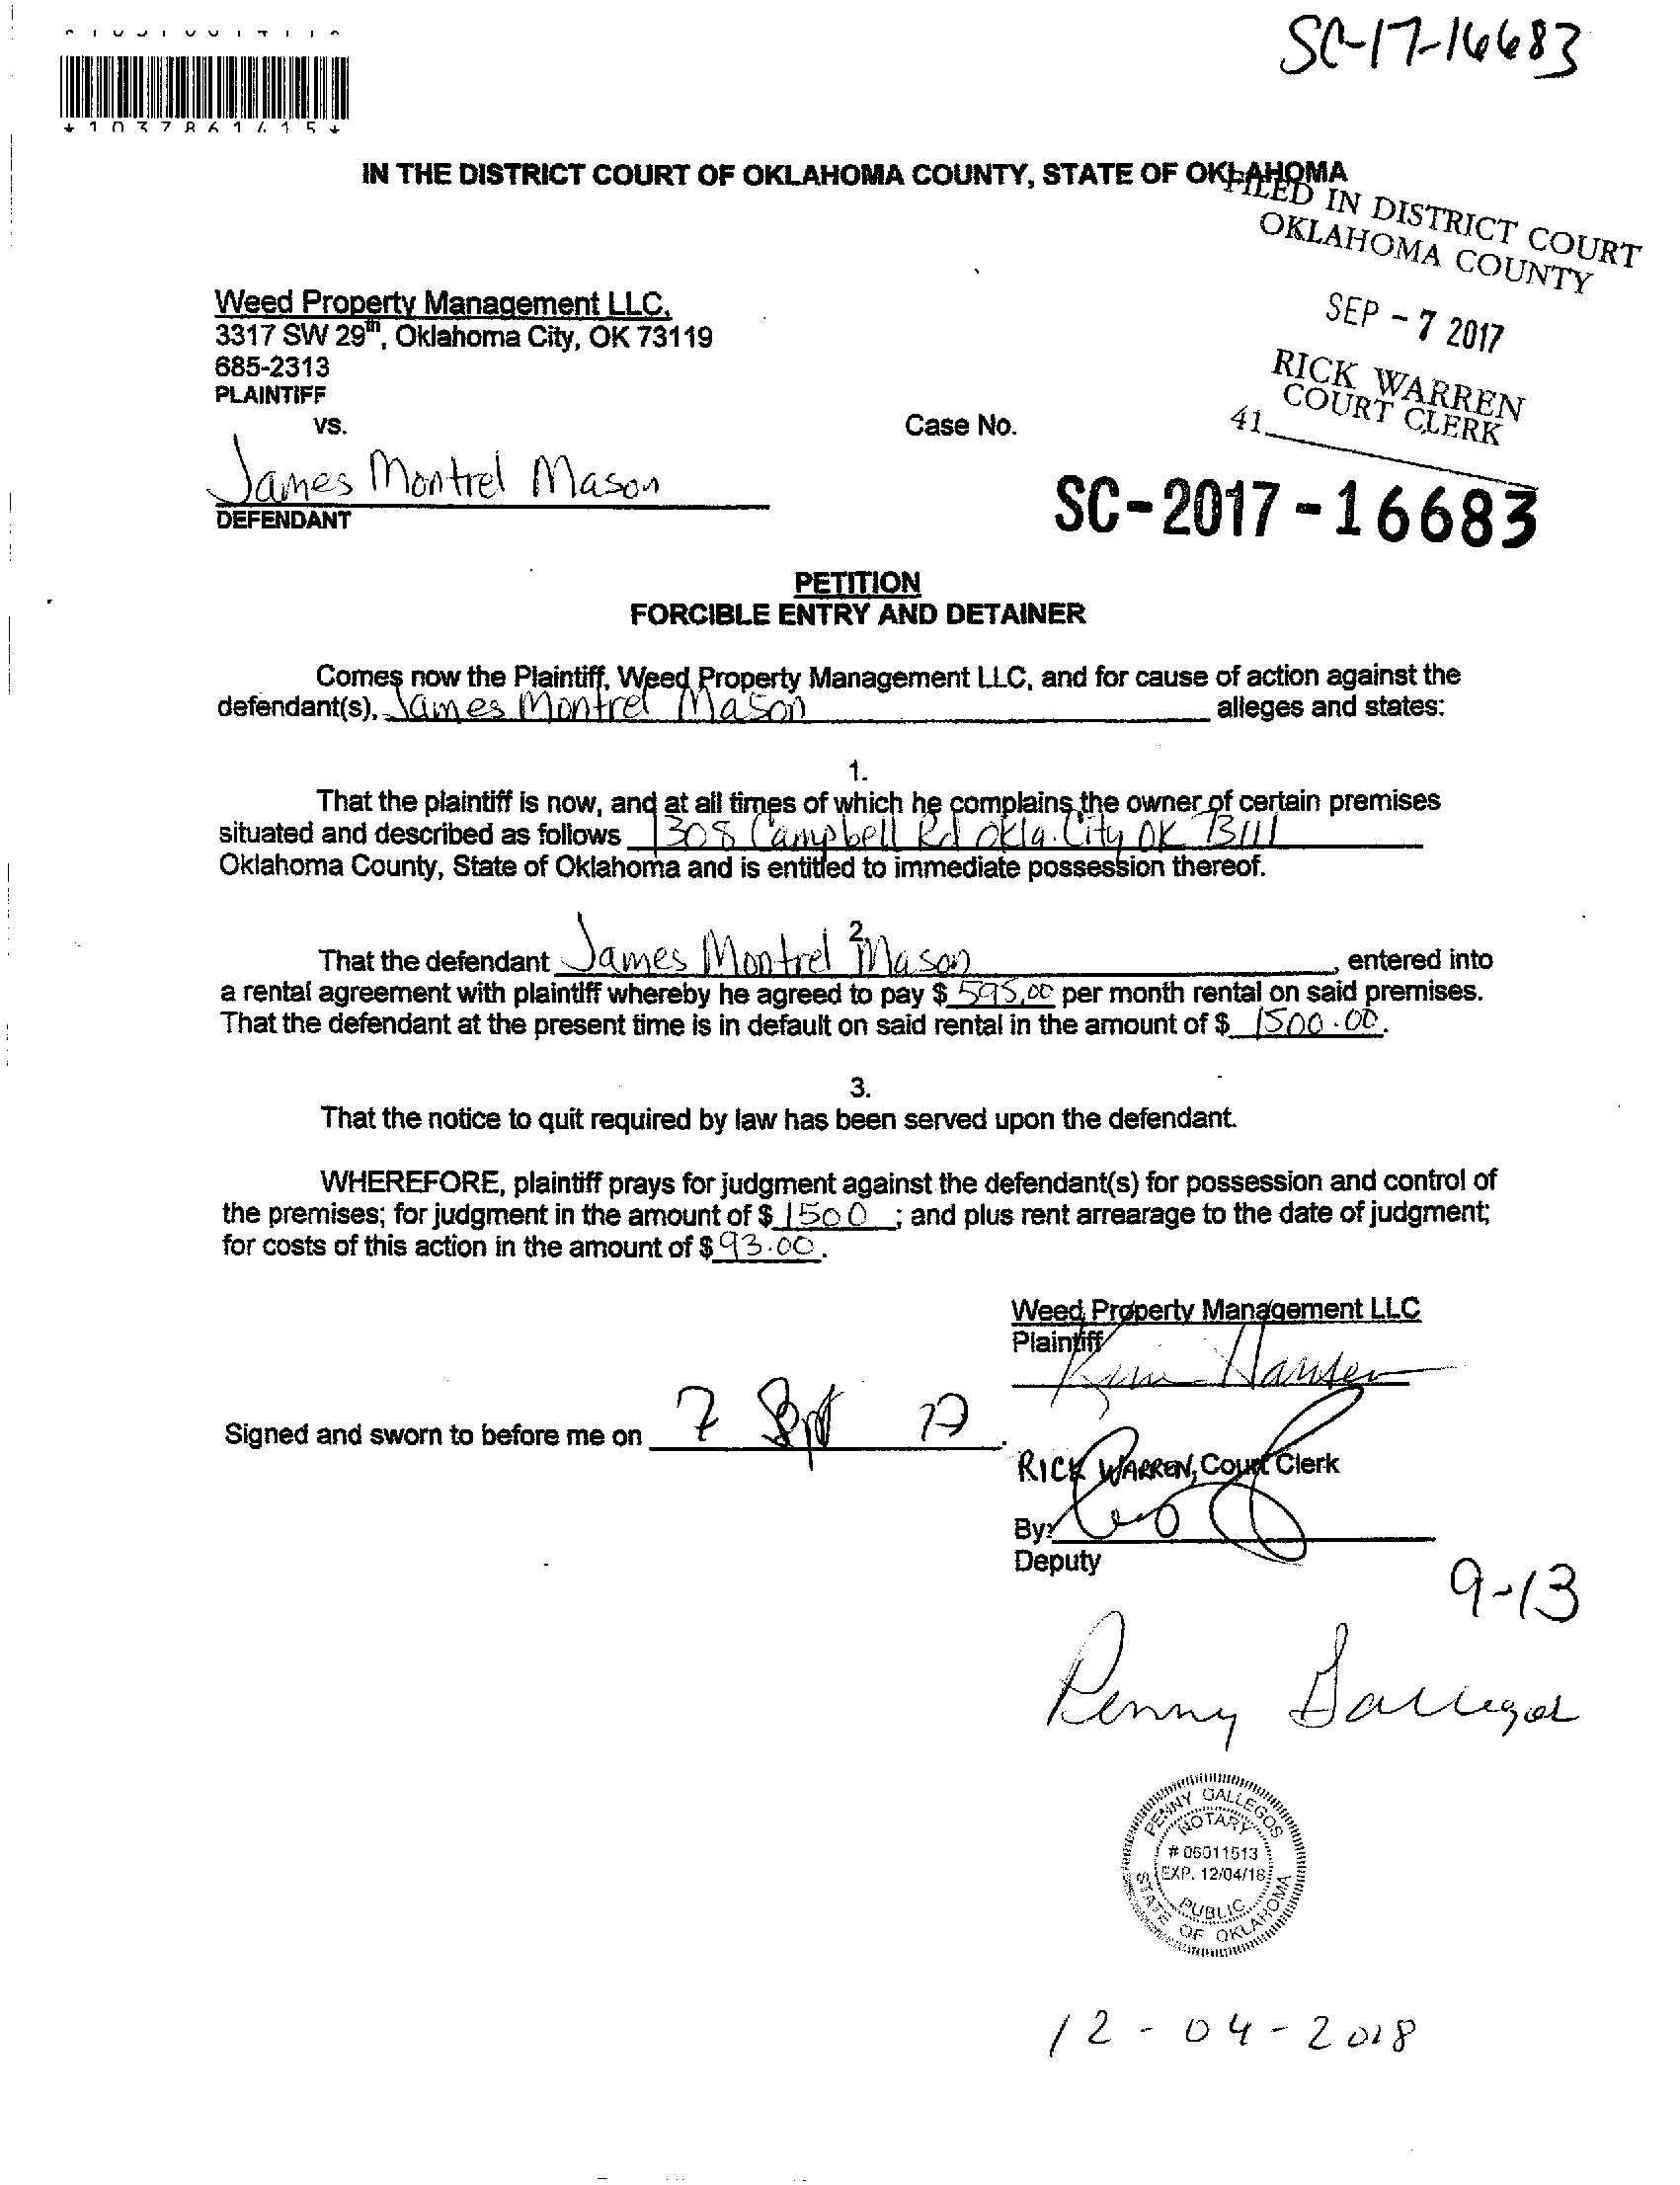 SC-17-16683
*1037861415*
IN THE DISTRICT COURT OF OKLAHOMA COUNTY, STATE OF OKLAHOMA
FILED IN DISTRICT COURT
OKLAHOMA COUNTY
SEP - 7 2017
RICK WARREN
COURT CLERK
41
Weed Property Management LLC,
3317 SW 29th, Oklahoma City, OK 73119
685-2313
PLAINTIFF
vs.
Case No.
James Montrel Mason
DEFENDANT
SC-2017-16683
PETITION
FORCIBLE ENTRY AND DETAINER
Comes now the Plaintiff, Weed Property Management LLC, and for cause of action against the
defendant(s), James Montrel Mason alleges and states:
1.
That the plaintiff is now, and at all times of which he complains the owner of certain premises
situated and described as follows 1308 Campbell Rd Okla. City OK 73111
Oklahoma County, State of Oklahoma and is entitled to immediate possession thereof.
2.
That the defendant James Montrel Mason, entered into
a rental agreement with plaintiff whereby he agreed to pay $ 595.00 per month rental on said premises.
That the defendant at the present time is in default on said rental in the amount of $ 1500.00.
3.
That the notice to quit required by law has been served upon the defendant.
WHEREFORE, plaintiff prays for judgment against the defendant(s) for possession and control of
the premises; for judgment in the amount of $ 1500 ; and plus rent arrearage to the date of judgment;
for costs of this action in the amount of $ 93.00.
Weed Property Management LLC
Plaintiff
Signed and sworn to before me on 7 Sept 17.
RICK WARREN, Court Clerk
By:
Deputy
9-13
Penny Gallegos
PENNY GALLEGOS
NOTARY
# 06011513
EXP. 12/04/18
PUBLIC
STATE OF OKLAHOMA
12-04-2018